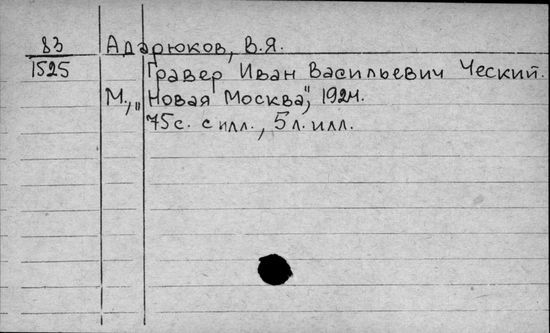 83 Адарюков, В.Я.
1525 Гравер Иван Васильевич Ческий.
М., „Новая Москва", 1924.
75с. с илл., 5л. илл.